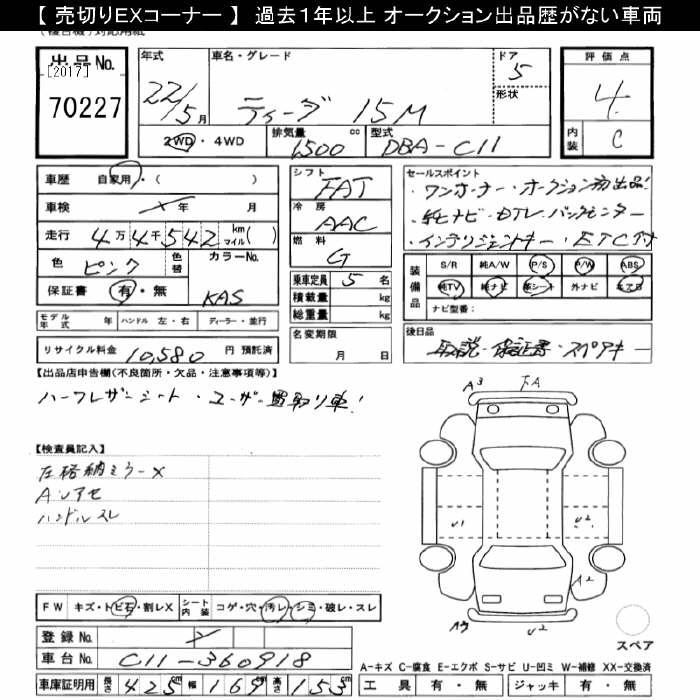 【 売切りEXコーナー 】 過去1年以上 オークション出品歴がない車両
出品No.
[2017]
70227
年式
22/5月
2WD・4WD
車名・グレード
ティーダ 15M
ドア
5
形状
排気量
1500 cc
型式
DBA-C11
評価点
4
内装
C
車歴 自家用・( )
車検 年 月
走行 4万4千542 km マイル( )
色 ピンク
色替
カラーNo.
KAS
保証書 有・無
モデル年式 年 ハンドル 左・右 ディーラー・並行
リサイクル料金 10,580 円 預託済
シフト
FAT
冷房
AAC
燃料
G
乗車定員 5 名
積載量 kg
総重量 kg
名変期限
月 日
セールスポイント
ワンオーナー・オークション初出品!
純ナビ・DTV・バックモニター
・インテリジェントキー・ETC付
装備品
S/R 純A/W P/S P/W ABS
純TV 純ナビ 革シート 外ナビ エアB
ナビ型番:
後日品
取説・保証書・スペアキー
【出品店申告欄(不良箇所・欠品・注意事項等)】
ハーフレザーシート・ユーザー買取り車!
【検査員記入】
左格納ミラーX
Aリアセ
ハンドルスレ
FW キズ・トビ石・割レX シート内装 コゲ・穴・汚レ・シミ・破レ・スレ
登録No.
車台No. C11-360918
車庫証明用 長さ 425 cm 幅 169 cm 高さ 153 cm
A3
FA
U1
U2
A2
A3
U2
スペア
A-キズ C-腐食 E-エクボ S-サビ U-凹ミ W-補修 XX-交換済
工具 有・無 ジャッキ 有・無